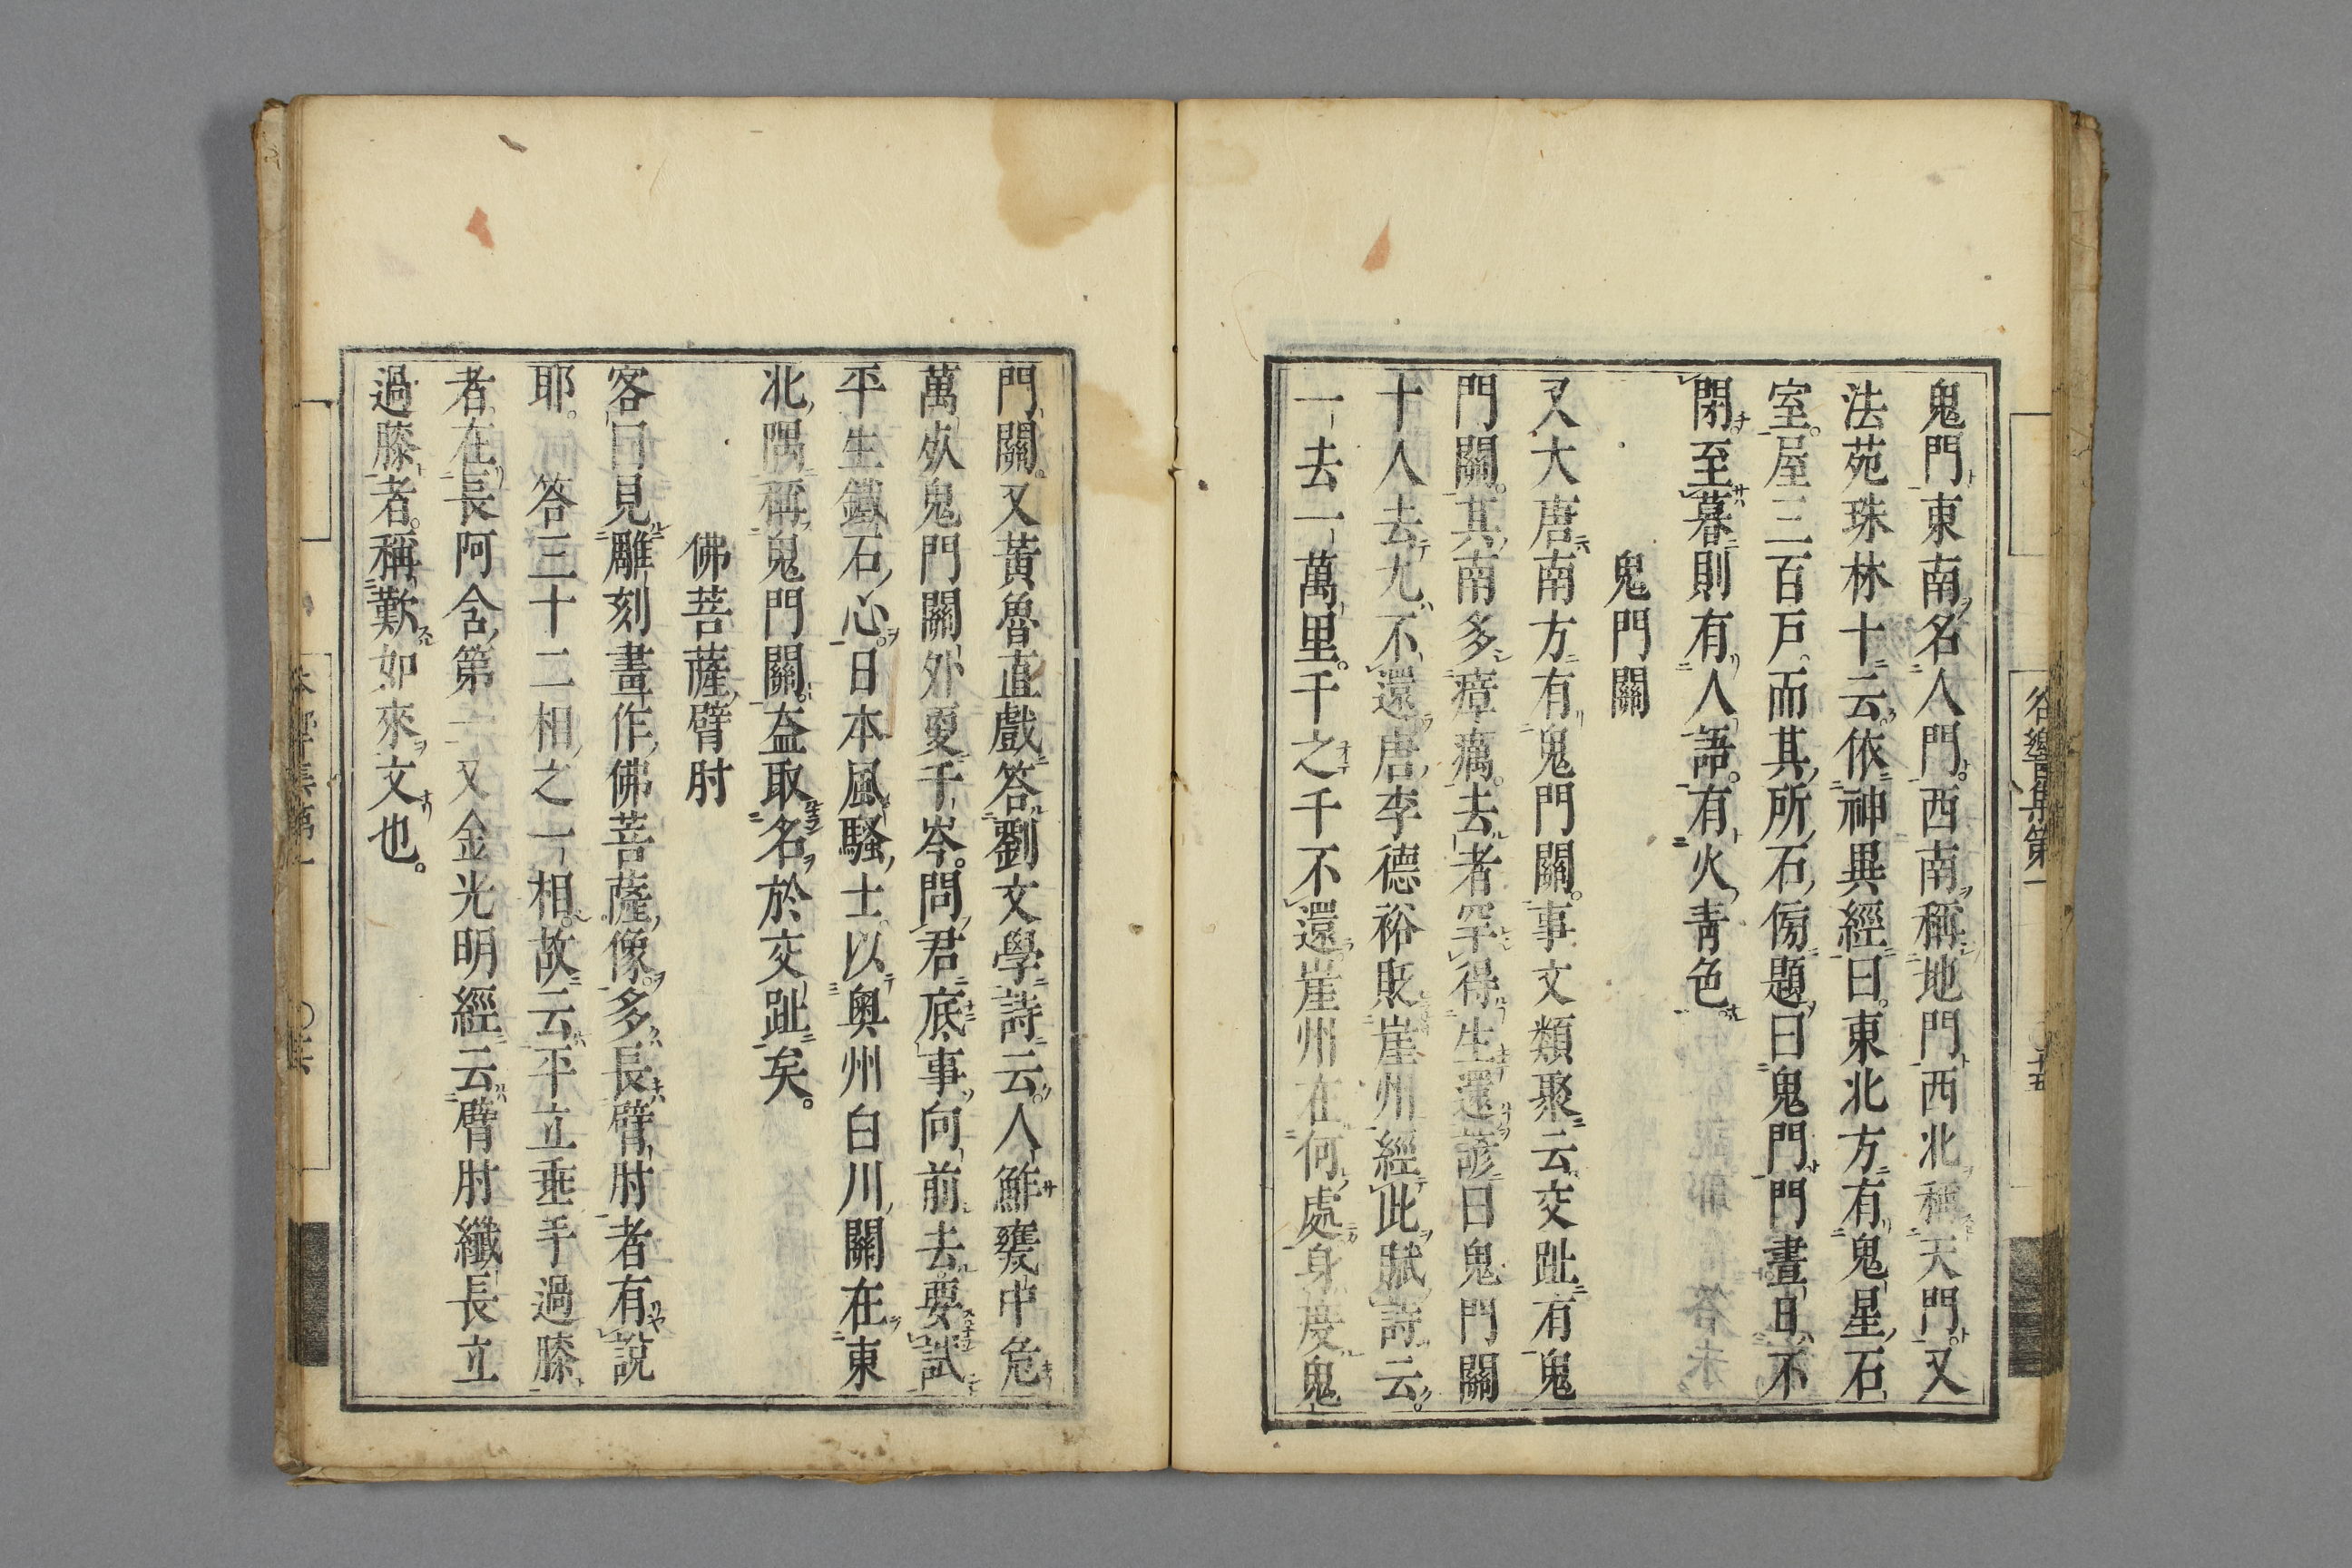 鬼門東南名人門。西南稱地門西北稱天門又
法苑珠林十云。依神異經曰。東北方有鬼星石
室。屋三百戸而其所石傍題曰鬼門門晝日不
閉至暮則有人語。有火青色
鬼門關
又大唐南方有鬼門關。事文類聚云交趾有鬼
門關。其南多瘴癘。去者罕得生還諺曰鬼門關
十人去九不還唐李德裕貶崖州經此賦詩云。
一去一萬里。千之千不還崖州在何處身度鬼
門關。又黃魯直戲答劉文學詩云。人鮓甕中危
萬死鬼門關外更千岑。問君底事向前去要試
平生鐵石心。日本風騷士以奧州白川關在東
北隅稱鬼門關。盖取名於交趾矣。
佛菩薩臂肘
客曰見雕刻畫作佛菩薩像。多長臂肘者有說
耶。 答三十二相之一相。故云平立垂手過膝
者在長阿含第一又金光明經云臂肘纖長立
過膝者。稱歎如來文也。
谷響集第一
十五